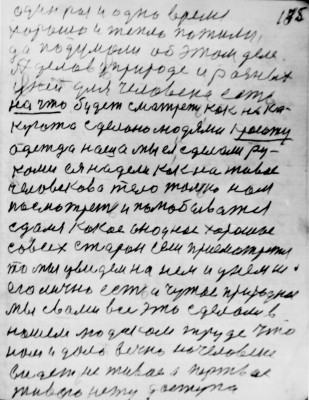 185
один раз и одно время
хорошо и тепло пожили
да подумали об этом деле.
А дела в природе и разных
у ней для человека есть
на что будет смотреть как на ка
сделано людями красоту
одежда наша мы ея сделали ру
ками ея надели как на живое
человекова тело только нам
посмотреть и полюбоваться
сдали какое она одное хорошое
со всех старон если присмотрется
то мы увидем на нем и у нем и
его лично есть и чужое природное
мы с вами все это сделали в
нашем людском труде что
нам и дало вечно на человеке
видеть не живое а мертвое
живого нету доступа